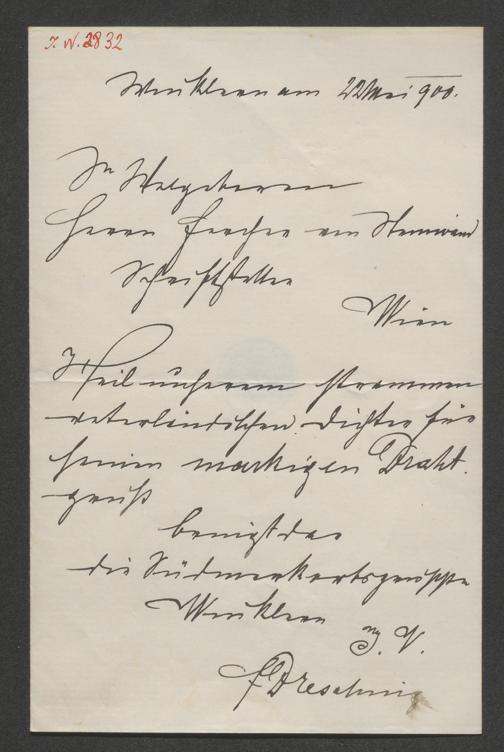 I. N. 2832
Winklern am 22 Mai 900.
Sr Wolgeboren
Herrn Fercher von Steinwand
Schriftsteller
Wien
Heil unserem strammen
vaterländischen Dichter für
seinen markigen Draht-
gruß
die Südmarkortsgruppe
Winklern
I. V.